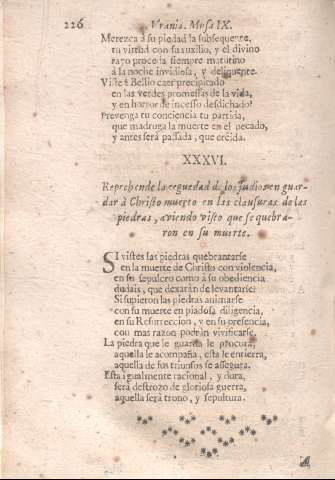 226 Vrania. Musa IX.
Merezca à su piedad la subsequente,
tu virtud con su auxilio, y el divino
rayo proceda siempre matutino
à la noche invidiosa, y delinquente.
Viste à Bellio caer precipitado
en las verdes promessas de la vida,
y en horror de incesso desdichado?
Prevenga tu conciencia tu partida,
que madruga la muerte en el pecado,
y antes serà passada, que creida.
XXXVI.
Reprehende la ceguedad de los Judios en guar-
dar à Christo muerto en las clausuras de las
piedras, aviendo visto que se quebra-
ron en su muerte.
SI vistes las piedras quebrantarse
en la muerte de Christo con violencia,
en su sepulcro como à su obediencia
dudais, que dexaràn de levantarse?
Si supieron las piedras animarse
con su muerte en piadosa diligencia,
en su Resurreccion, y en su presencia,
con mas razon podràn vivificarse,
La piedra que le guarda le procura;
aquella le acompaña, esta le entierra,
aquella de sus triunfos se assegura.
Esta igualmente racional, y dura,
serà destrozo de gloriosa guerra,
aquella serà trono, y sepultura.